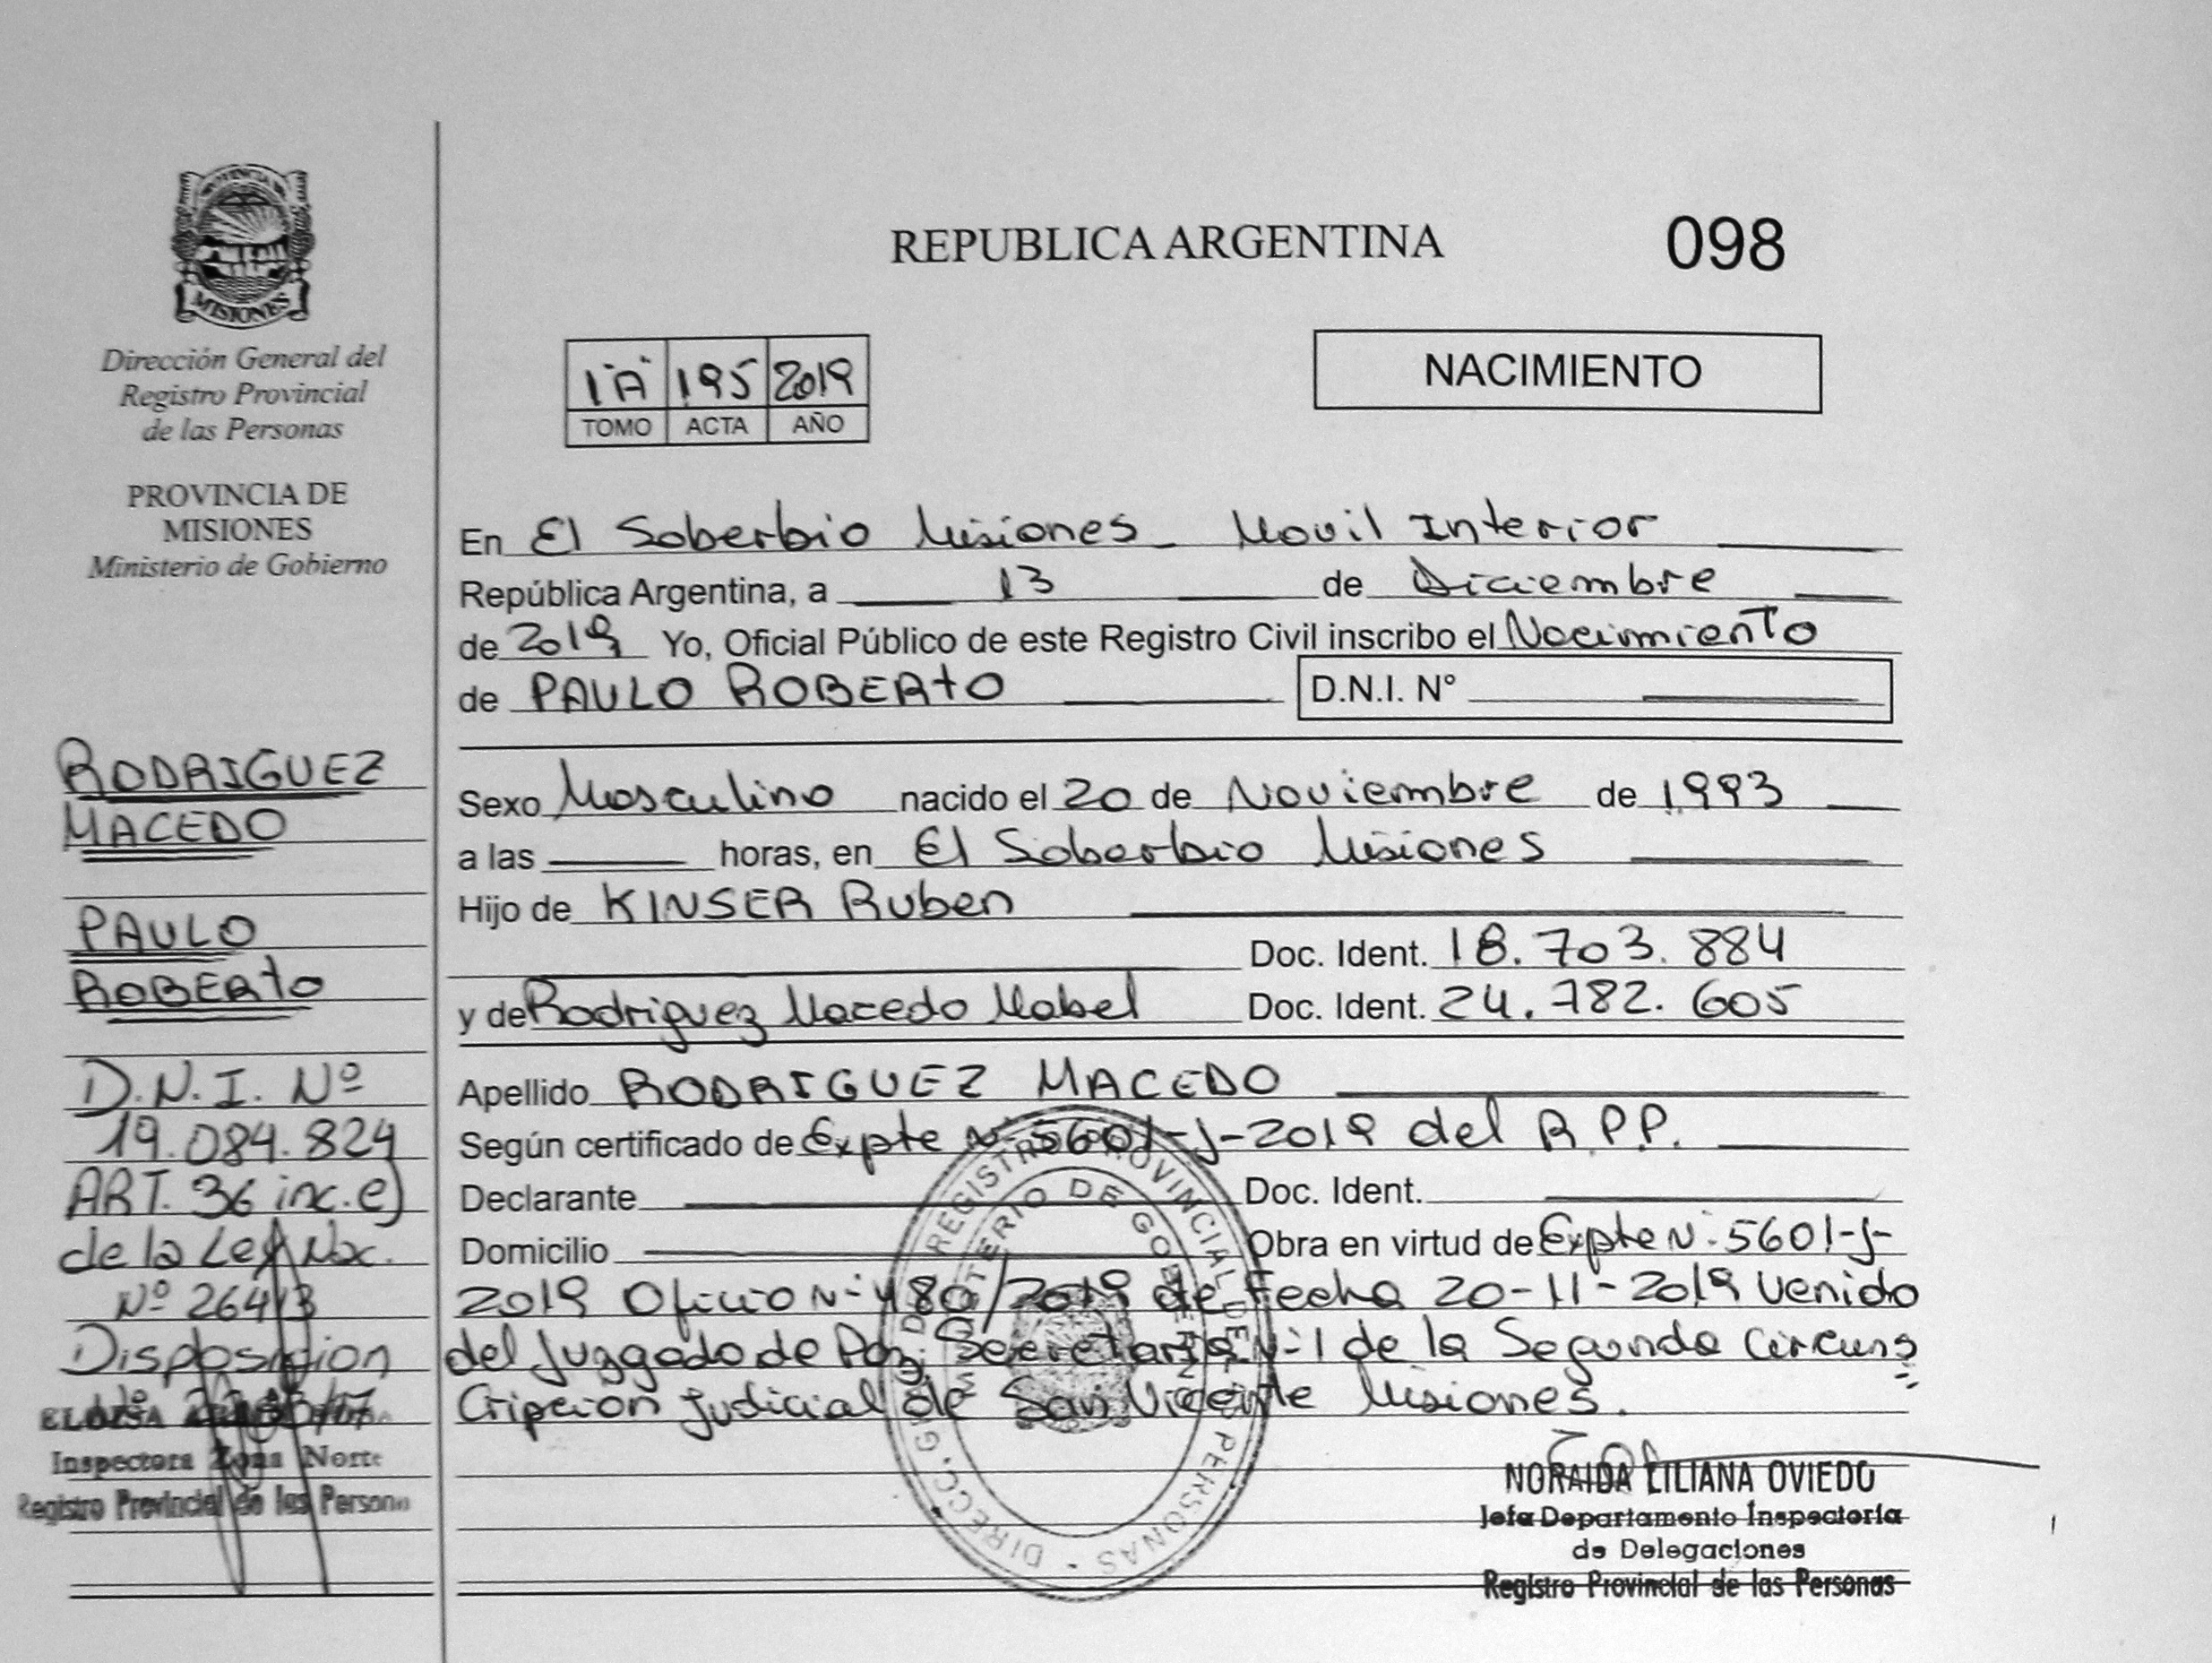 PROVINCIA DE
MISIONES
Dirección General del
Registro Provincial
de las Personas
PROVINCIA DE
MISIONES
Ministerio de Gobierno
RODRIGUEZ
MACEDO
PAULO
ROBERTO
D.N.I. Nº
19.084.824
ART. 36 inc. e)
de la Ley Nac.
Nº 26413
Disposicion
Nº
ELOISA
Inspectora Zona Norte
Registro Provincial de las Persona
REPUBLICA ARGENTINA
098
1"A" 195 2019
TOMO ACTA AÑO
NACIMIENTO
En El Soberbio Misiones - Movil Interior
República Argentina, a 13 de Diciembre
de 2019 Yo, Oficial Público de este Registro Civil inscribo el Nacimiento
de PAULO ROBERTO D.N.I. N°
Sexo Masculino nacido el 20 de Noviembre de 1993
a las horas, en El Soberbio Misiones
Hijo de KINSER Ruben
Doc. Ident. 18.703.884
y de Rodriguez Macedo Mabel Doc. Ident. 24.782.605
Apellido RODRIGUEZ MACEDO
Según certificado de Expte N° 5601-J-2019 del R.P.P.
Declarante Doc. Ident.
Domicilio Obra en virtud de Expte N° 5601-J-
2019 Oficio N° 480/2019 de Fecha 20-11-2019 Venido
del Juzgado de Paz, Secretaria N°1 de la Segunda Circuns
Cripcion Judicial de San Vicente Misiones.
DIRECC. GRAL. DE REGISTRO PROVINCIAL DE LAS PERSONAS
MINISTERIO DE GOBIERNO
NORAIDA LILIANA OVIEDO
Jefa Departamento Inspectoría
de Delegaciones
Registro Provincial de las Personas